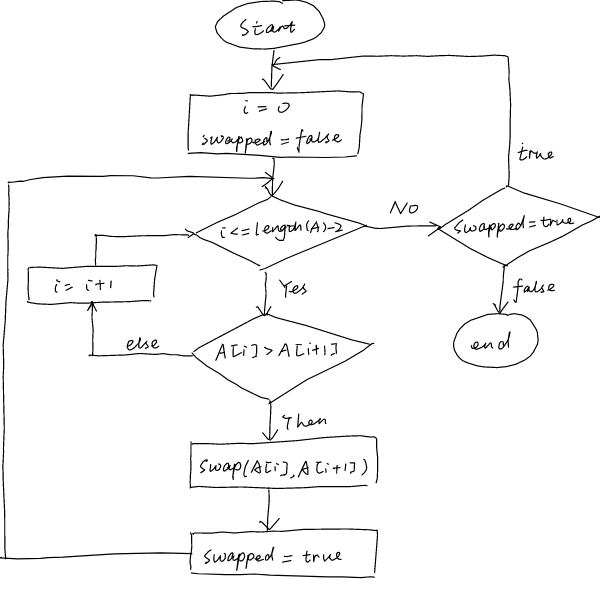 Start
i = 0
swapped = false
i <= length(A)-2
No
swapped = true
true
false
end
Yes
i = i+1
else
A[i] > A[i+1]
Then
swap(A[i], A[i+1])
swapped = true